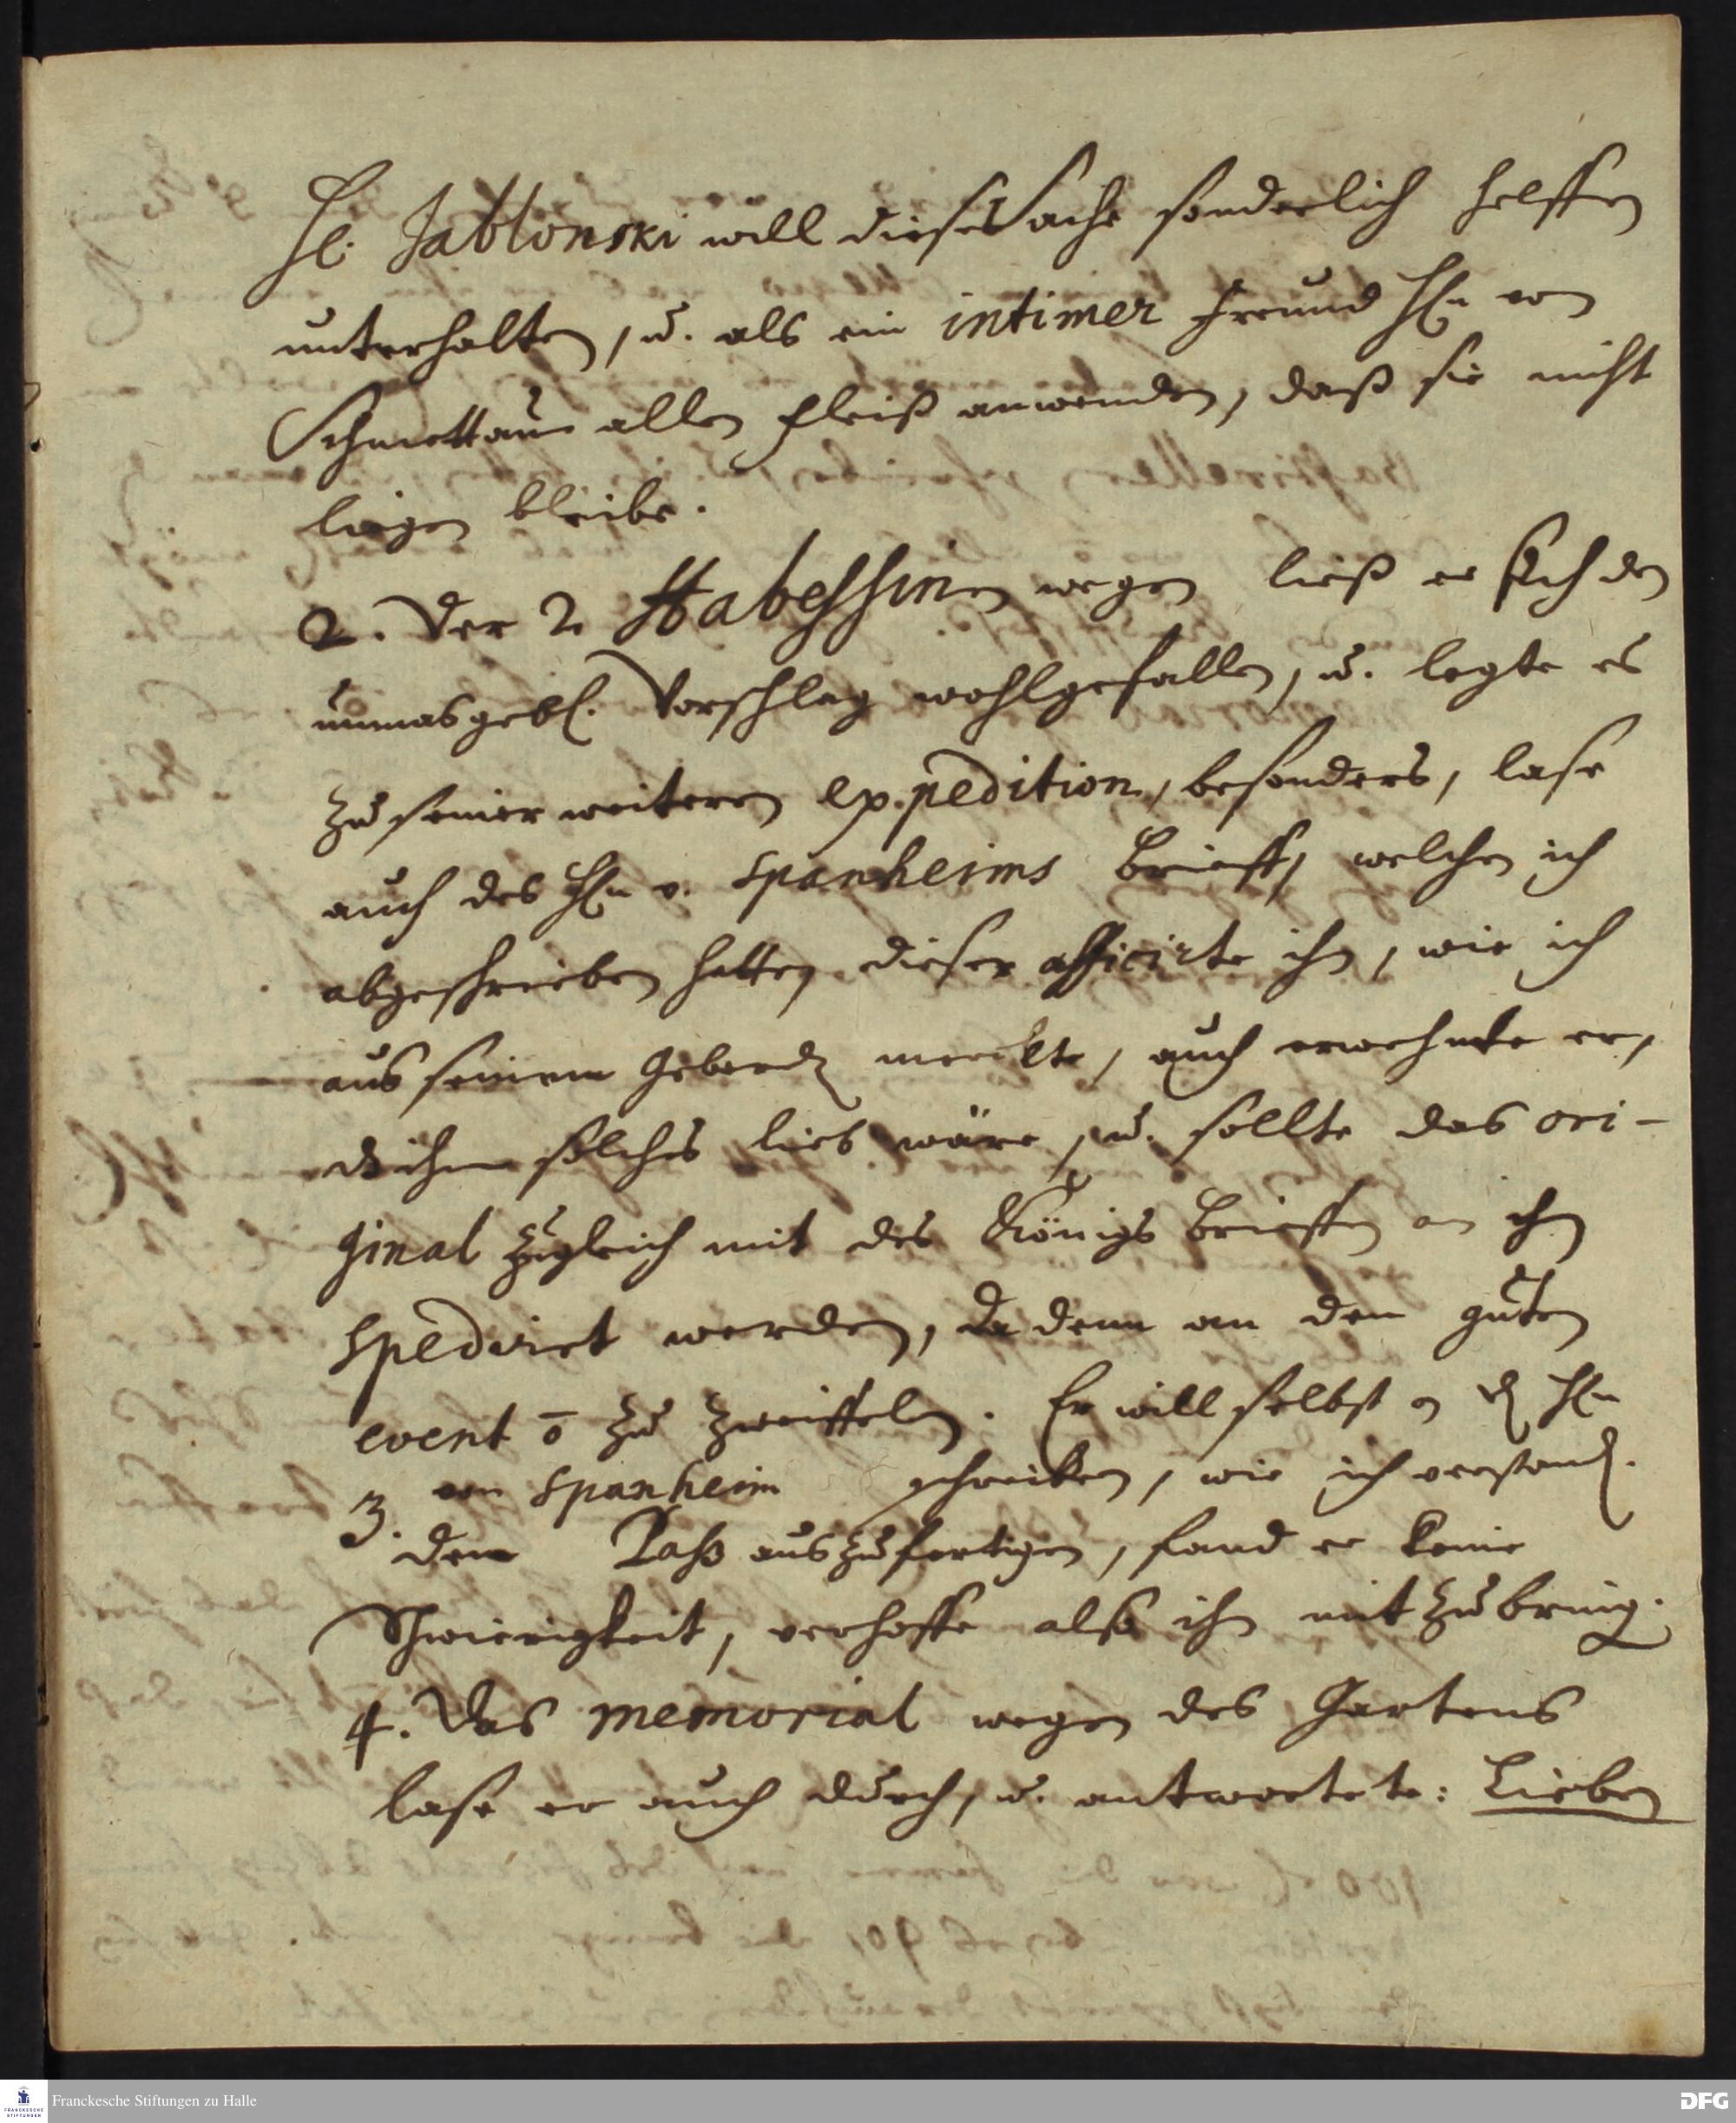 H. Jablonski will diese Sache sonderlich helffen
unterhalten, u. als ein intimer Freund Hn von
Schmettau allen Fleiß anwenden, daß sie nicht
liegen bleibe.
2. Der 2 Habessinen wegen ließ er sich den
unmasgebl. Vorschlag wohlgefallen, u. legte es
zu seiner weiteren expedition, besonders, lase
auch des Hn v. Spanheims Brieff, welchen ich
abgeschrieben hatte, dieser afficirte ihn, wie ich
aus seinem Geberden merckte, auch erwehnte er,
dz ihm solches lieb wäre, u. sollte das ori-
ginal zugleich mit des Königs Brieffen an ihn
spediret werden, da denn an dem guten
event õ zu zweiffeln. Er will selbst an den Hn
von Spanheim schreiben, wie ich verstand.
3. den Paß auszufertigen, fand er keine
Schwierigkeit, verhoffe also ihn mitzubring.
4. Das memorial wegen des Gartens
lase er auch durch, u. antwortete: Lieben
Franckesche Stiftungen zu Halle
DFG